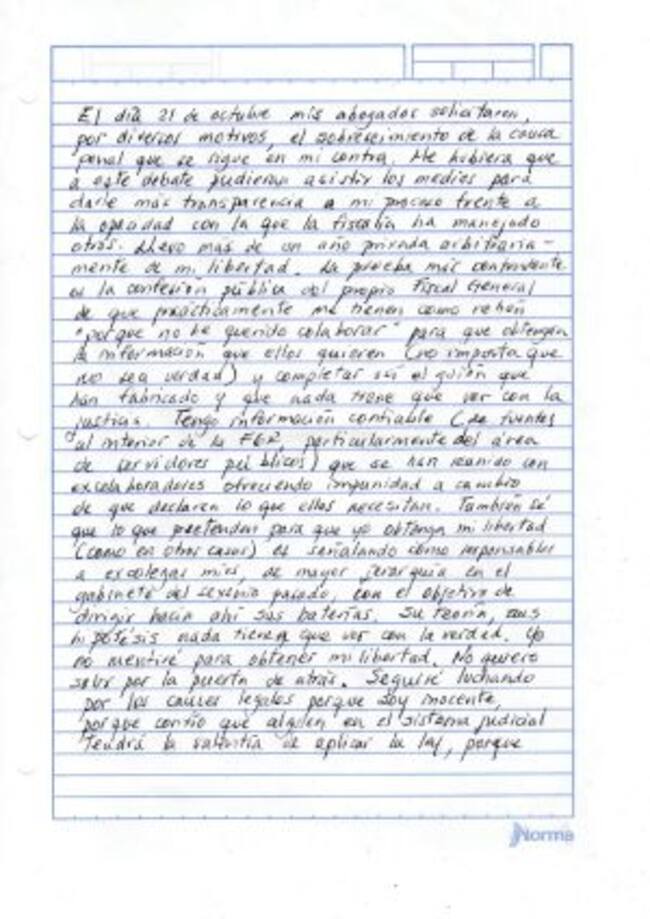 El día 21 de octubre mis abogados solicitaron,
por diversos motivos, el sobreseimiento de la causa
penal que se sigue en mi contra. Me hubiera que
a este debate pudieran asistir los medios para
darle más transparencia a mi proceso frente a
la opacidad con la que la fiscalía ha manejado
otros. Llevo mas de un año privada arbitraria-
mente de mi libertad. La prueba más contundente
es la confesión pública del propio Fiscal General
de que prácticamente me tienen como rehén
"porque no he querido colaborar" para que obtengan
la información que ellos quieren (no importa que
no sea verdad) y completar así el guión que
han fabricado y que nada tiene que ver con la
justicia. Tengo información confiable (de fuentes
al interior de la FGR, particularmente del área
de servidores públicos) que se han reunido con
excolaboradores ofreciendo impunidad a cambio
de que declaren lo que ellos necesitan. También sé
que lo que pretenden para que yo obtenga mi libertad
(como en otros casos) es señalando como responsables
a excolegas míos, de mayor jerarquía en el
gabinete del sexenio pasado, con el objetivo de
dirigir hacia ahí sus baterías. Su teoría, sus
hipótesis nada tienen que ver con la verdad. Yo
no mentiré para obtener mi libertad. No quiero
salir por la puerta de atrás. Seguiré luchando
por los cauces legales porque soy inocente,
porque confío que alguien en el sistema judicial
tendrá la valentía de aplicar la ley, porque
Norma